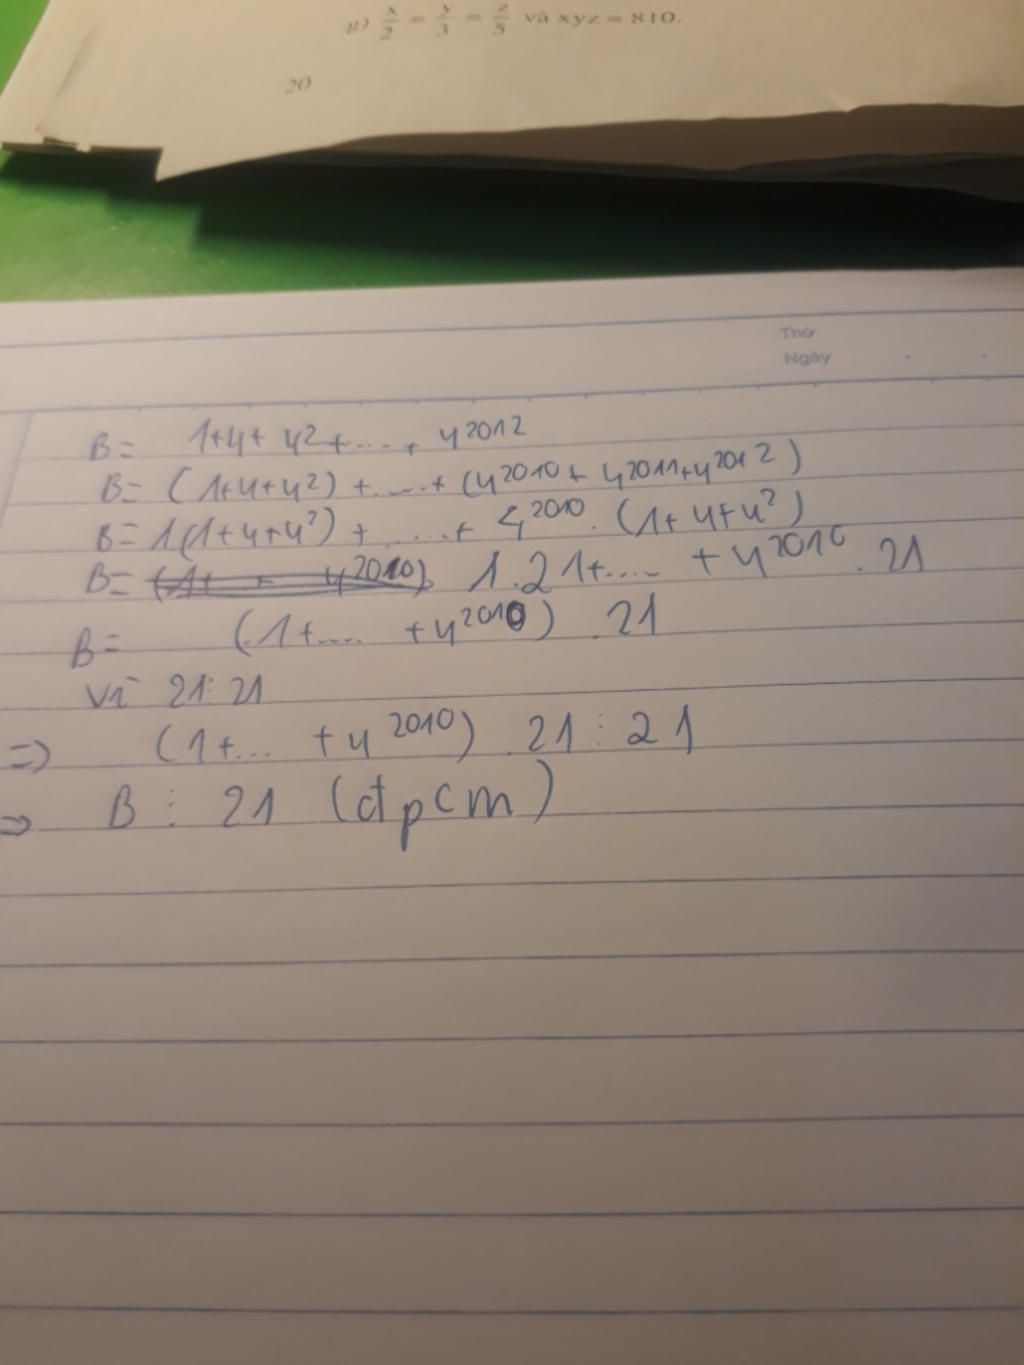 g) x/2 = y/3 = z/5 và xyz = 810.
20
Thứ
Ngày
B= 1+4+ 4² +....+ 4²⁰¹²
B= (1+4+4²) +......+ (4²⁰¹⁰+ 4²⁰¹¹+4²⁰¹²)
B=1(1+4+4²) + ......+ 4²⁰¹⁰. (1+4+4²)
B= 1.21+..... + 4²⁰¹⁰ . 21
B= (1+..... +4²⁰¹⁰) .21
Vì 21⋮21
=> (1+... +4²⁰¹⁰) .21⋮21
=> B ⋮ 21 (đpcm)